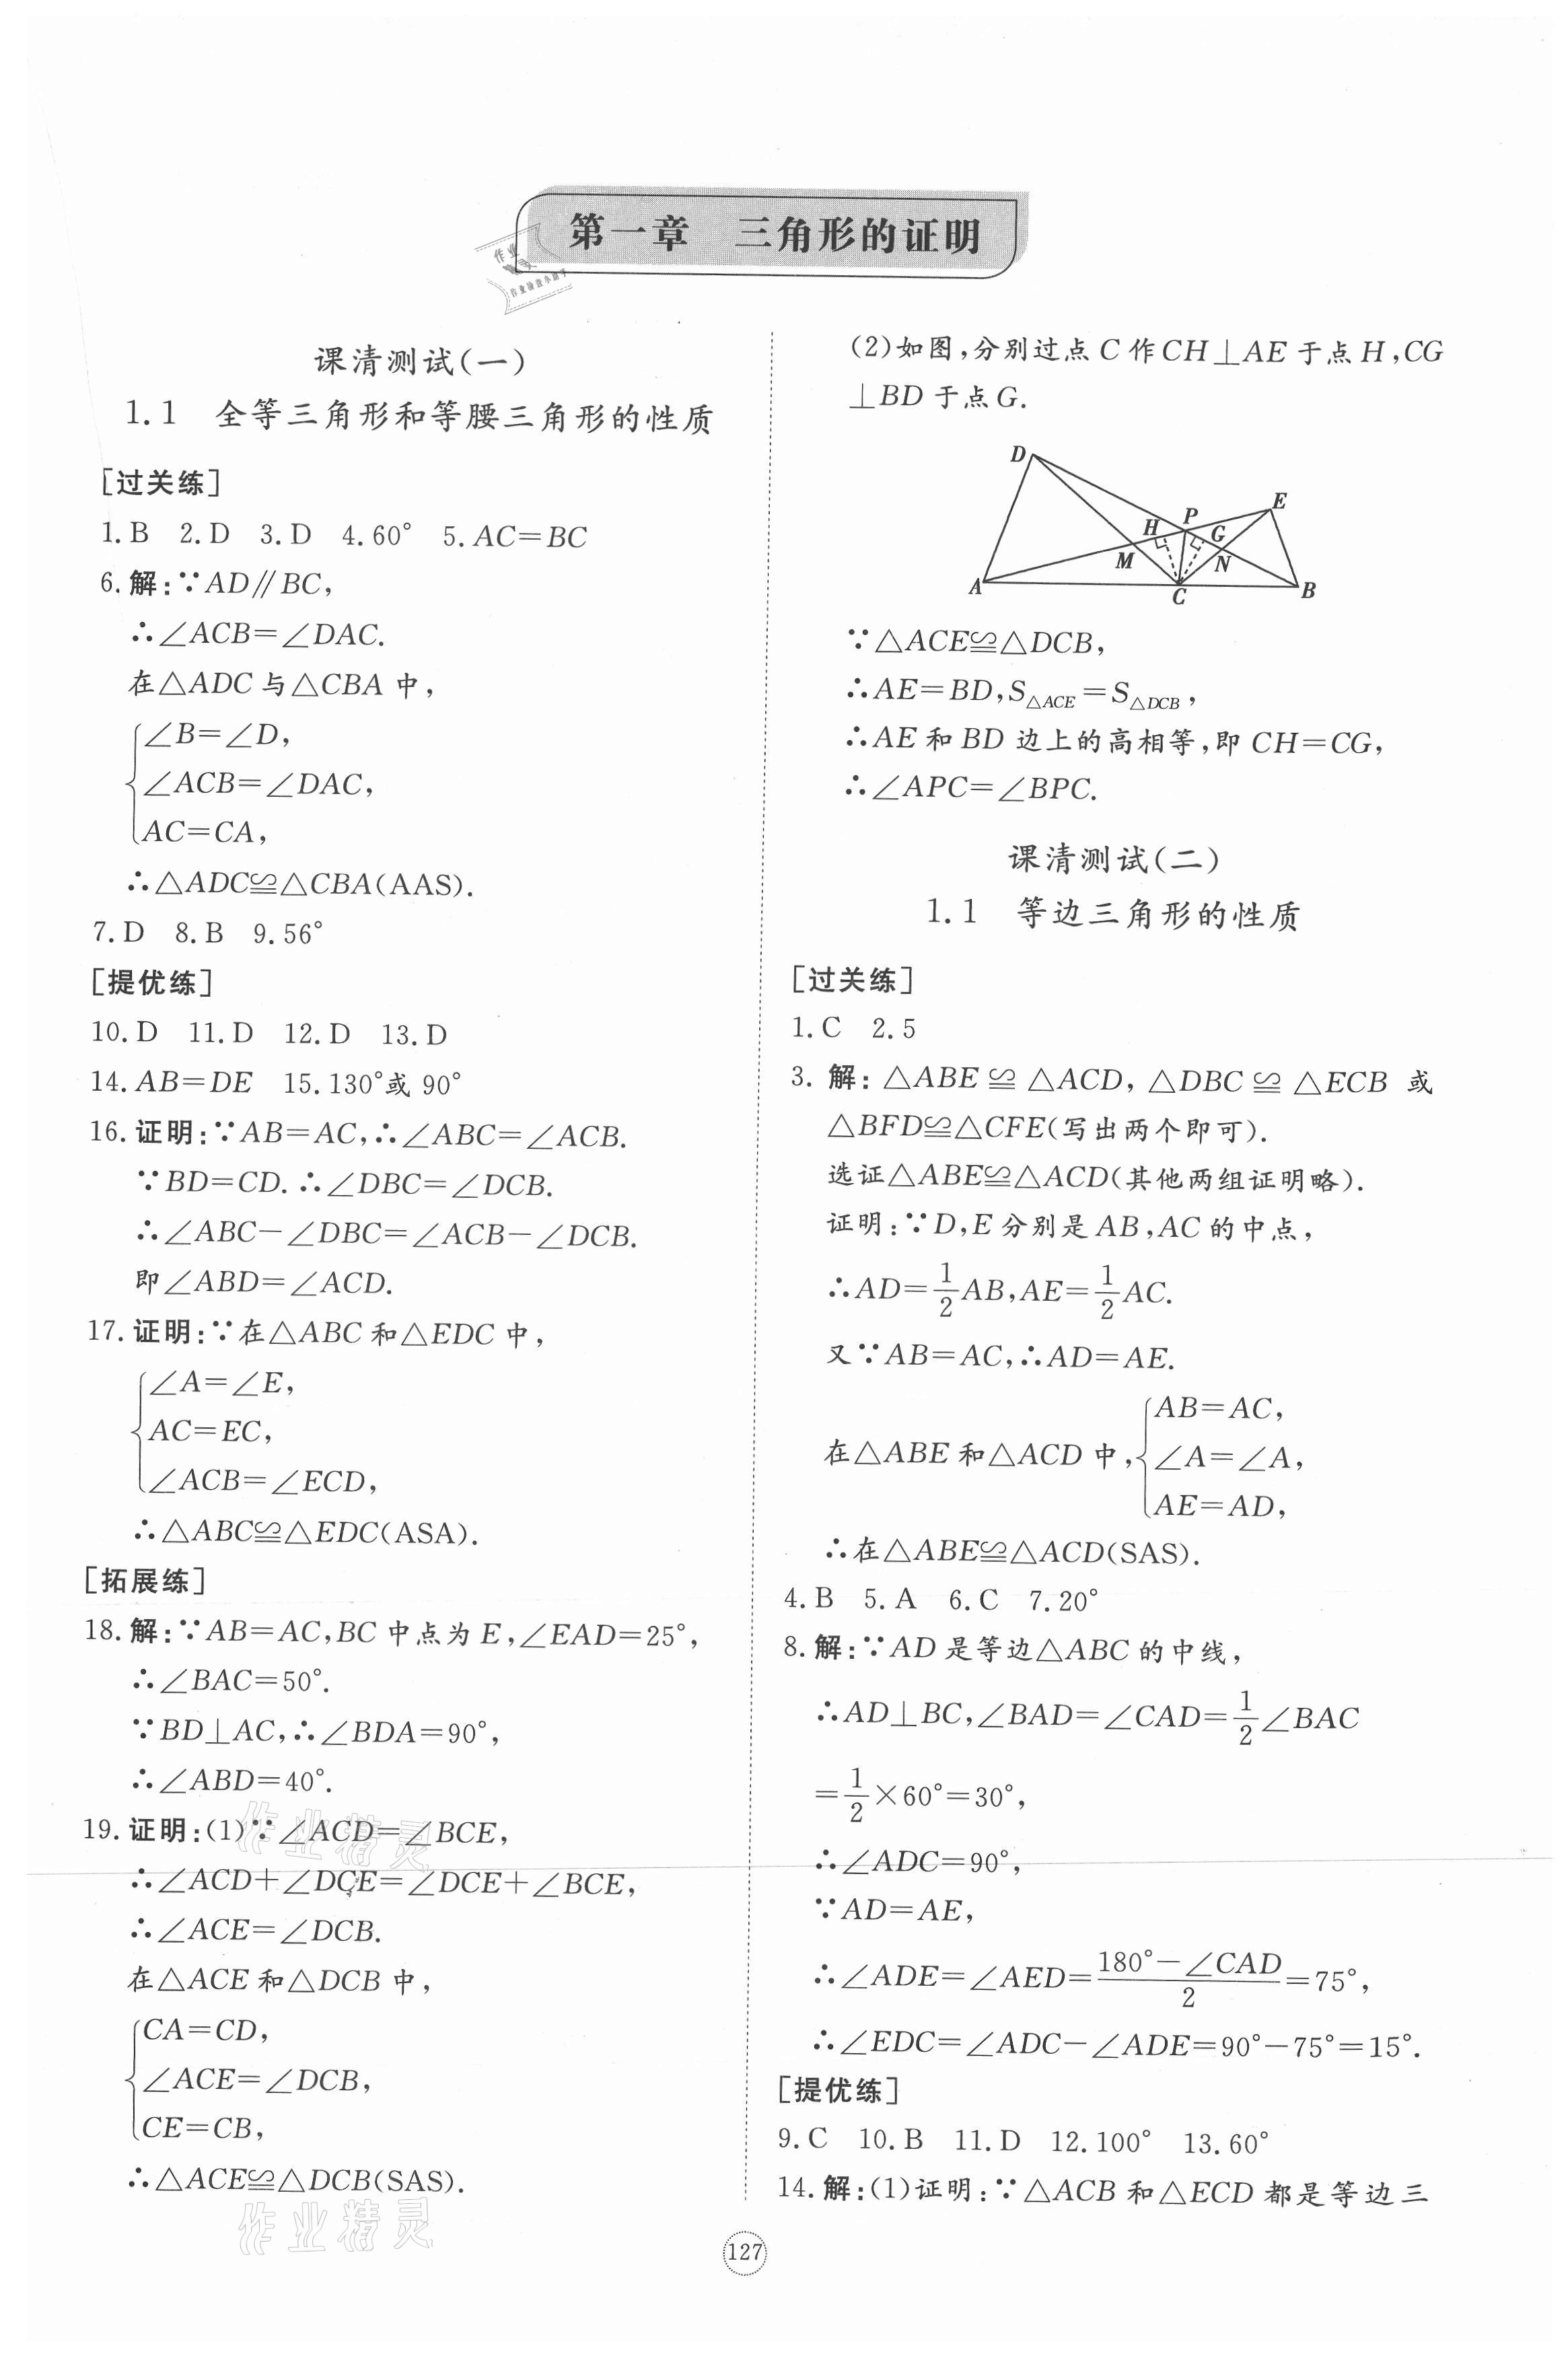 第一章 三角形的证明
作业
作业检查小助手
课清测试(一)
1.1 全等三角形和等腰三角形的性质
[过关练]
1.B 2.D 3.D 4.60° 5.AC=BC
6.解:∵AD∥BC,
∴∠ACB=∠DAC.
在△ADC与△CBA中,
∠B=∠D,
∠ACB=∠DAC,
AC=CA,
∴△ADC≌△CBA(AAS).
7.D 8.B 9.56°
[提优练]
10.D 11.D 12.D 13.D
14.AB=DE 15.130°或90°
16.证明:∵AB=AC,∴∠ABC=∠ACB.
∵BD=CD.∴∠DBC=∠DCB.
∴∠ABC-∠DBC=∠ACB-∠DCB.
即∠ABD=∠ACD.
17.证明:∵在△ABC和△EDC中,
∠A=∠E,
AC=EC,
∠ACB=∠ECD,
∴△ABC≌△EDC(ASA).
[拓展练]
18.解:∵AB=AC,BC中点为E,∠EAD=25°,
∴∠BAC=50°.
∵BD⊥AC,∴∠BDA=90°,
∴∠ABD=40°.
19.证明:(1)∵∠ACD=∠BCE,
∴∠ACD+∠DCE=∠DCE+∠BCE,
∴∠ACE=∠DCB.
在△ACE和△DCB中,
CA=CD,
∠ACE=∠DCB,
CE=CB,
∴△ACE≌△DCB(SAS).
作业精灵
作业精灵
(2)如图,分别过点C作CH⊥AE于点H,CG
⊥BD于点G.
D
E
P
H
G
M
N
A
C
B
∵△ACE≌△DCB,
∴AE=BD,S△ACE=S△DCB,
∴AE和BD边上的高相等,即CH=CG,
∴∠APC=∠BPC.
课清测试(二)
1.1 等边三角形的性质
[过关练]
1.C 2.5
3.解:△ABE≌△ACD,△DBC≌△ECB或
△BFD≌△CFE(写出两个即可).
选证△ABE≌△ACD(其他两组证明略).
证明:∵D,E分别是AB,AC的中点,
∴AD=1/2AB,AE=1/2AC.
又∵AB=AC,∴AD=AE.
AB=AC,
在△ABE和△ACD中,∠A=∠A,
AE=AD,
∴在△ABE≌△ACD(SAS).
4.B 5.A 6.C 7.20°
8.解:∵AD是等边△ABC的中线,
∴AD⊥BC,∠BAD=∠CAD=1/2∠BAC
=1/2×60°=30°,
∴∠ADC=90°,
∵AD=AE,
∴∠ADE=∠AED=(180°-∠CAD)/2=75°,
∴∠EDC=∠ADC-∠ADE=90°-75°=15°.
[提优练]
9.C 10.B 11.D 12.100° 13.60°
14.解:(1)证明:∵△ACB和△ECD都是等边三
127